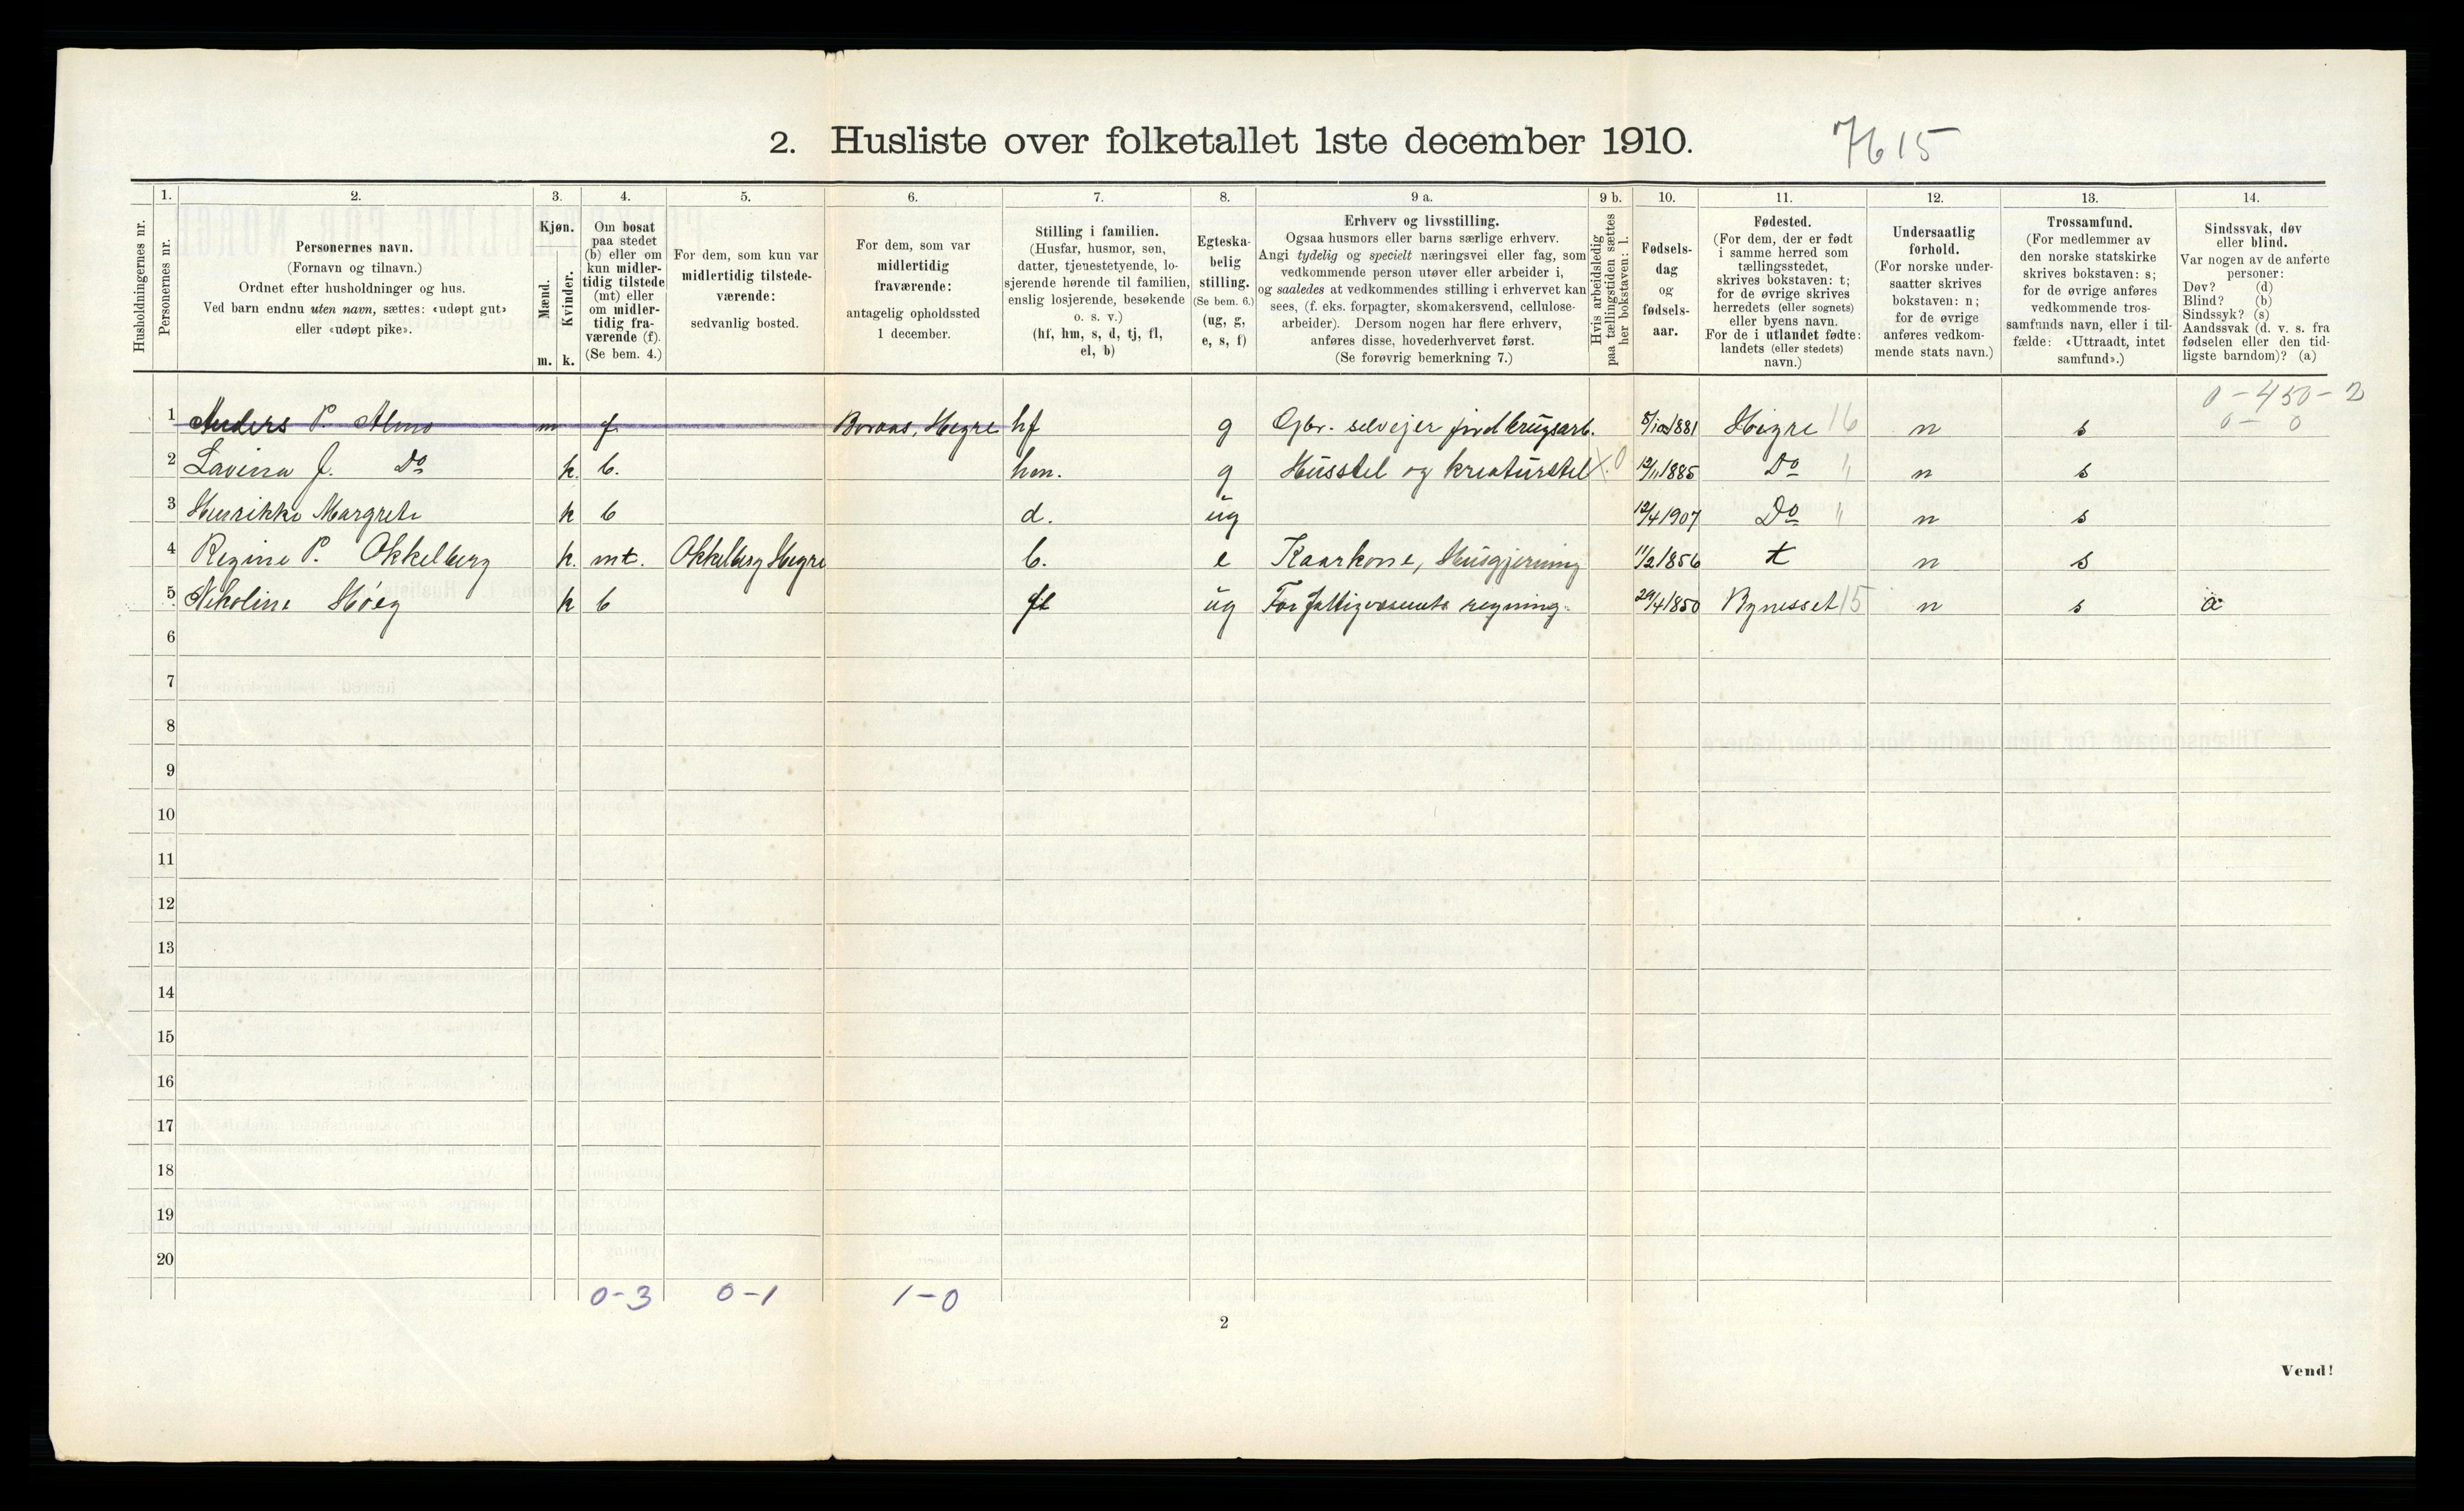 2. Husliste over folketallet 1ste december 1910.
7615
1. 2. 3. 4. 5. 6. 7. 8. 9 a. 9 b. 10. 11. 12. 13. 14.
Husholdningernes nr.
Personernes nr.
Personernes navn.
(Fornavn og tilnavn.)
Ordnet efter husholdninger og hus.
Ved barn endnu uten navn, sættes: «udøpt gut»
eller «udøpt pike».
Kjøn.
Mænd.
Kvinder.
m. k.
Om bosat
paa stedet
(b) eller om
kun midler-
tidig tilstede
(mt) eller
om midler-
tidig fra-
værende (f).
(Se bem. 4.)
For dem, som kun var
midlertidig tilstede-
værende:
sedvanlig bosted.
For dem, som var
midlertidig
fraværende:
antagelig opholdssted
1 december.
Stilling i familien.
(Husfar, husmor, søn,
datter, tjenestetyende, lo-
sjerende hørende til familien,
enslig losjerende, besøkende
o. s. v.)
(hf, hm, s, d, tj, fl,
el, b)
Egteska-
belig
stilling.
(Se bem. 6.)
(ug, g,
e, s, f)
Erhverv og livsstilling.
Ogsaa husmors eller barns særlige erhverv.
Angi tydelig og specielt næringsvei eller fag, som
vedkommende person utøver eller arbeider i,
og saaledes at vedkommendes stilling i erhvervet kan
sees, (f. eks. forpagter, skomakersvend, cellulose-
arbeider). Dersom nogen har flere erhverv,
anføres disse, hovederhvervet først.
(Se forøvrig bemerkning 7.)
Hvis arbeidsledig
paa tællingstiden sættes
her bokstaven: l.
Fødsels-
dag
og
fødsels-
aar.
Fødested.
(For dem, der er født
i samme herred som
tællingsstedet,
skrives bokstaven: t;
for de øvrige skrives
herredets (eller sognets)
eller byens navn.
For de i utlandet fødte:
landets (eller stedets)
navn.)
Undersaatlig
forhold.
(For norske under-
saatter skrives
bokstaven: n;
for de øvrige
anføres vedkom-
mende stats navn.)
Trossamfund.
(For medlemmer av
den norske statskirke
skrives bokstaven: s;
for de øvrige anføres
vedkommende tros-
samfunds navn, eller i til-
fælde: «Uttraadt, intet
samfund».)
Sindssvak, døv
eller blind.
Var nogen av de anførte
personer:
Døv? (d)
Blind? (b)
Sindssyk? (s)
Aandssvak (d. v. s. fra
fødselen eller den tid-
ligste barndom)? (a)
0-450-2
0- 0
1 Anders P. Almo m f Boraas, Hegre hf g Gbr. selvejer jordbrugsarb. 5/10 1881 Hegre 16 n s
2 Lavina J. Do k. b. hm. g Husstel og kreaturstel X.0 12/11 1885 Do " n s
3 Henrikke Margrete k b d. ug 12/4 1907 Do " n s
4 Regine P. Okkelberg k. mt. Okkelberg Hegre b. e Kaarkone, Husgjerning 11/2 1856 t n s
5 Nikoline Høeg k b fl ug For fattigvæsenets regning. 29/4 1850 Bynesset 15 n s a
6
7
8
9
10
11
12
13
14
15
16
17
18
19
20
0-3 0-1 1-0
2
Vend!